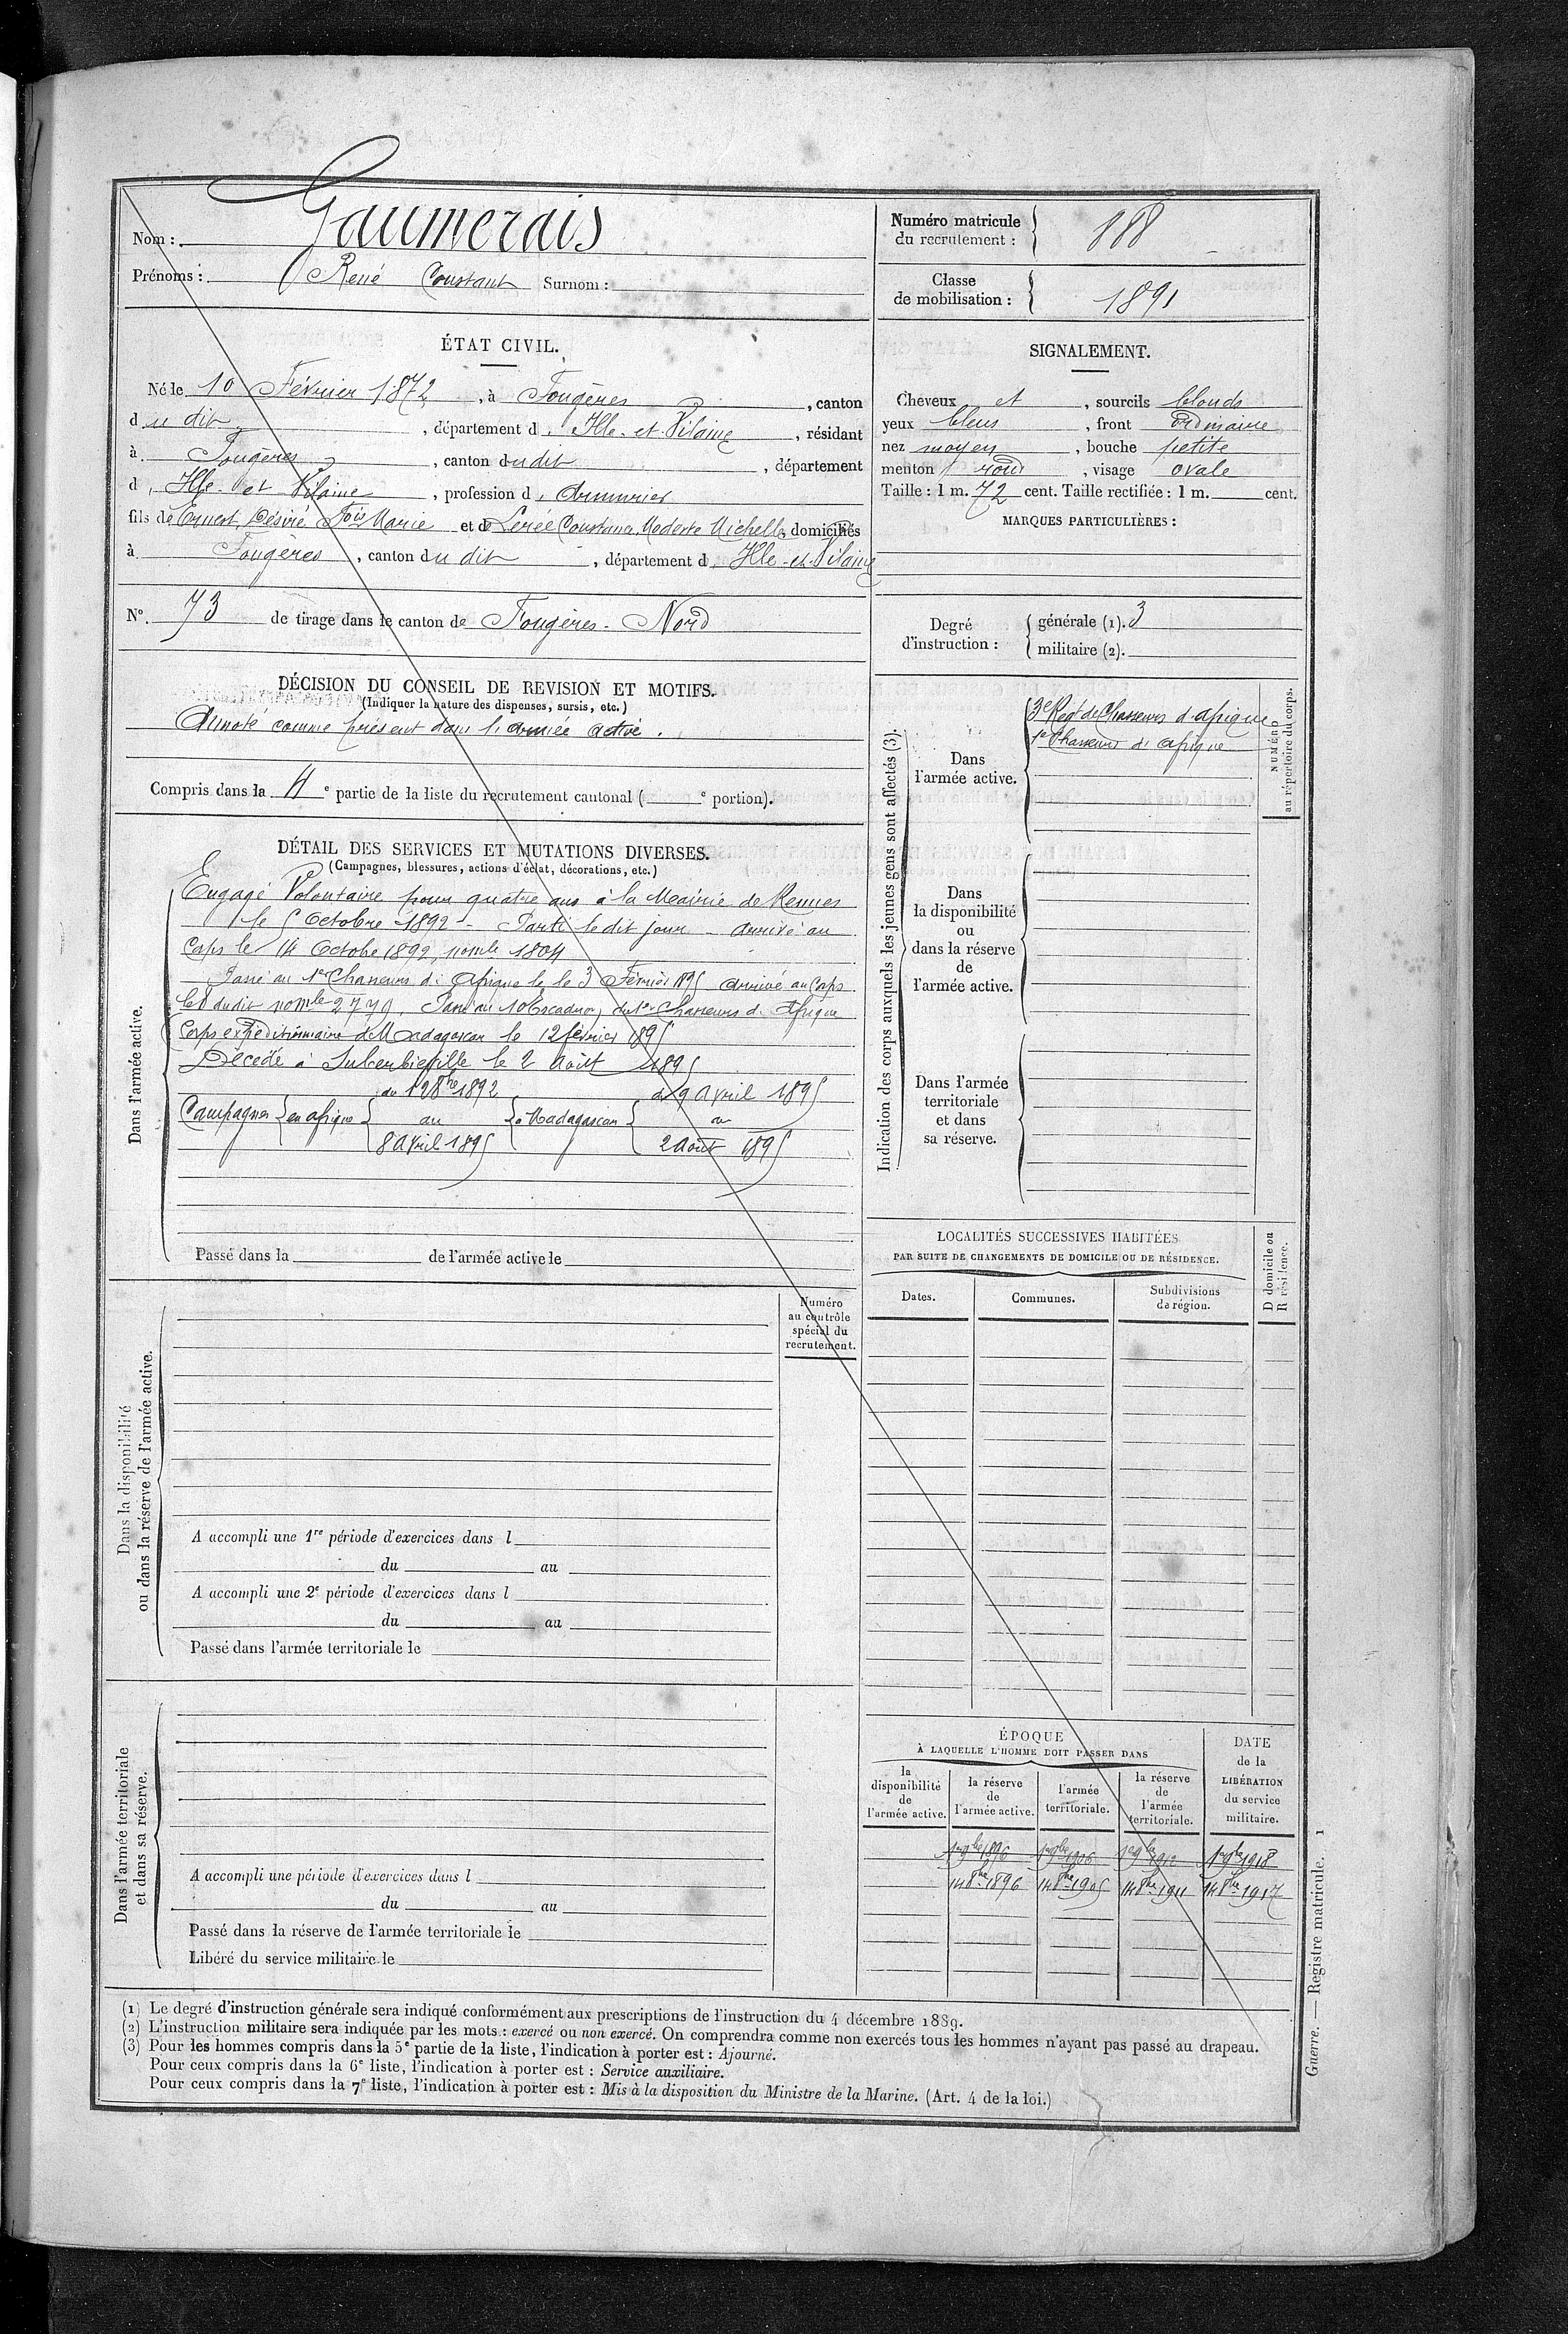 Nom : Gaumerais
Prénoms : René Constant Surnom :
Numéro matricule du recrutement : 888
Classe de mobilisation : 1891
ÉTAT CIVIL.
Né le 10 Février 1872, à Fougères, canton
du dit, département d'Ille-et-Vilaine, résidant
à Fougères, canton du dit, département
d'Ille-et-Vilaine, profession d'armurier
fils de Ernest Désiré Fois Marie et de Constance Modeste Michelle, domiciliés
à Fougères, canton du dit, département d'Ille-et-Vilaine
N° 73 de tirage dans le canton de Fougères-Nord
SIGNALEMENT.
Cheveux et, sourcils blonds
yeux bleus, front ordinaire
nez moyen, bouche petite
menton rond, visage ovale
Taille : 1 m. 72 cent. Taille rectifiée : 1 m. cent.
MARQUES PARTICULIÈRES :
Degré d'instruction :
générale (1). 3
militaire (2).
DÉCISION DU CONSEIL DE REVISION ET MOTIFS.
(Indiquer la nature des dispenses, sursis, etc.)
Annoté comme présent dans l'armée active.
Compris dans la 4e partie de la liste du recrutement cantonal ( e portion).
DÉTAIL DES SERVICES ET MUTATIONS DIVERSES.
(Campagnes, blessures, actions d'éclat, décorations, etc.)
Dans l'armée active.
Engagé Volontaire pour quatre ans à la Mairie de Rennes
le Octobre 1892 - Parti le dit jour - arrivé au
Corps le 14 Octobre 1892, nomle 1804
Passé au 1er Chasseurs d'Afrique le le 3 Février 1895 arrivé au Corps
le dudit nomle 2779. Passé au 10e Escadron du 1er Chasseurs d'Afrique
Corps expéditionnaire de Madagascar le 12 février 1895
Décédé à Suberbieville le 2 Août 1895
Campagnes { en afrique { du 12 8bre 1892 au 8 Avril 1895 { à Madagascar { du 9 avril 1895 au 2 août 1895
Passé dans la de l'armée active le
Indication des corps auxquels les jeunes gens sont affectés (3).
Dans l'armée active.
3e Régt de Chasseurs d'afrique
1e Chasseurs d'afrique
NUMÉRO au répertoire du corps.
Dans la disponibilité ou dans la réserve de l'armée active.
Dans l'armée territoriale et dans sa réserve.
LOCALITÉS SUCCESSIVES HABITÉES
PAR SUITE DE CHANGEMENTS DE DOMICILE OU DE RÉSIDENCE.
Dates. Communes. Subdivisions de région.
D domicile ou R résidence.
Dans la disponibilité ou dans la réserve de l'armée active.
Numéro au contrôle spécial du recrutement.
A accompli une 1re période d'exercices dans l
du au
A accompli une 2e période d'exercices dans l
du au
Passé dans l'armée territoriale le
Dans l'armée territoriale et dans sa réserve.
A accompli une période d'exercices dans l
du au
Passé dans la réserve de l'armée territoriale le
Libéré du service militaire le
ÉPOQUE
À LAQUELLE L'HOMME DOIT PASSER DANS
la disponibilité de l'armée active. la réserve de l'armée active. l'armée territoriale. la réserve de l'armée territoriale. DATE de la LIBÉRATION du service militaire.
1er 9bre 1896 1er 9bre 1906 1er 9bre 1912 1er 9bre 1918
14 8bre 1896 14 8bre 1905 14 8bre 1911 14 8bre 1917
(1) Le degré d'instruction générale sera indiqué conformément aux prescriptions de l'instruction du 4 décembre 1889.
(2) L'instruction militaire sera indiquée par les mots : exercé ou non exercé. On comprendra comme non exercés tous les hommes n'ayant pas passé au drapeau.
(3) Pour les hommes compris dans la 5e partie de la liste, l'indication à porter est : Ajourné.
Pour ceux compris dans la 6e liste, l'indication à porter est : Service auxiliaire.
Pour ceux compris dans la 7e liste, l'indication à porter est : Mis à la disposition du Ministre de la Marine. (Art. 4 de la loi.)
Guerre. — Registre matricule. 1